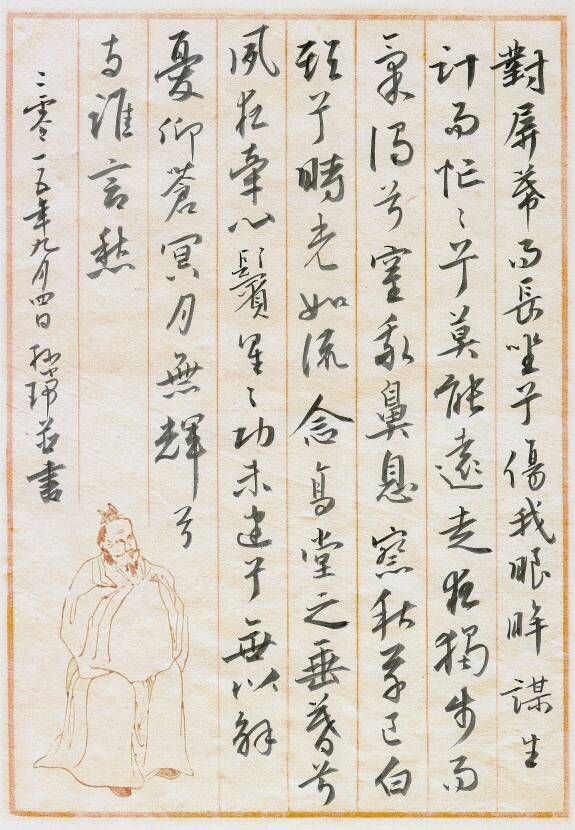 對屏幕而長坐兮傷我眼眸謀生
計而忙〻兮莫能遠走夜獨步而
氣濁兮窒我鼻息察秋草已白
頭兮時光如流念高堂之垂暮兮
夙夜牽心鬢星〻功未建兮無以解
憂仰蒼冥月無輝兮
與誰言愁
二零一五年九月四日 並書